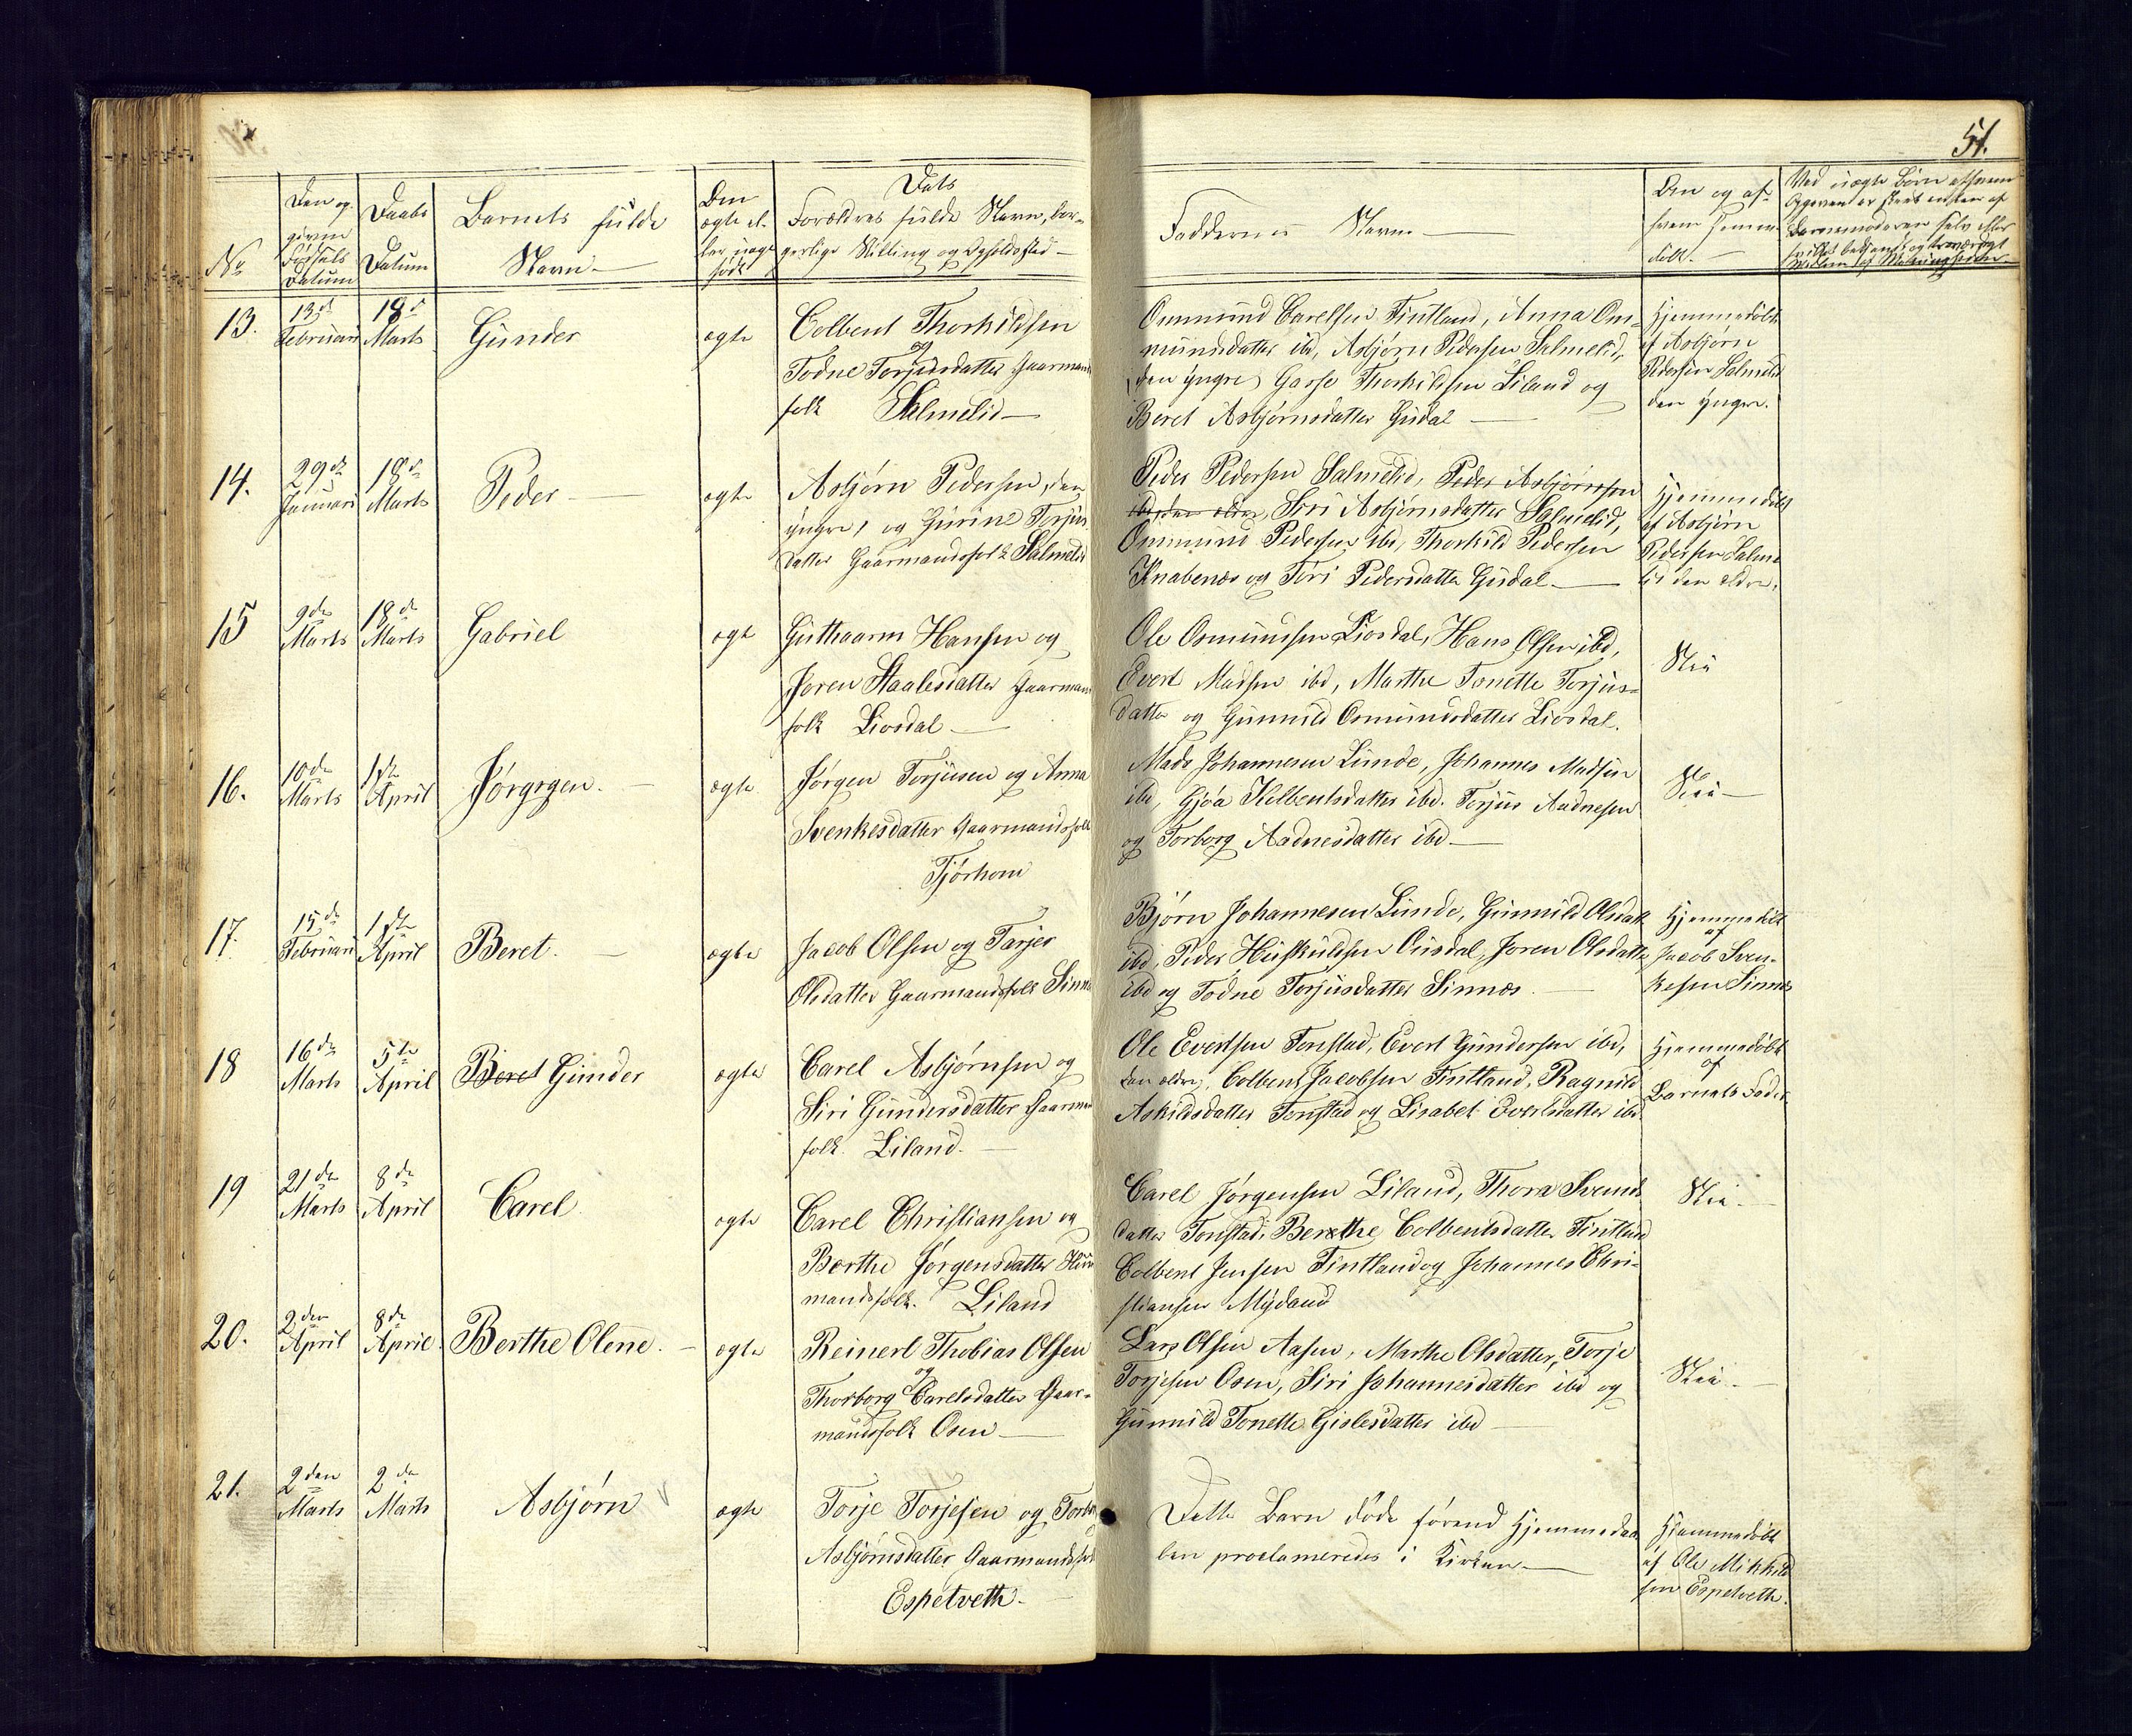 51.
No
Den op-
givne
Fødsels
Datum
Daabs
Datum
Barnets fulde
Navn
Om
ægte el-
ler uægte
født
Dets
Forældres fulde Navn, bor-
gerlige Stilling og Opholdssted
Faddernes Navn
Om og af
hvem hjemme-
døbt.
Ved uægte Børn
13.
13de
Februari
18de
Marts
Gunder
ægte
Colbent Thorkildsen
og
Todne Torjusdatter Gaarmands
folk Salmelid
Ommund Carelsen Tintland, Anna Om-
mundsdatter ibd, Asbjørn Pedersen Salmelid,
(den yngre) Garse Thorkildsen Liland og
Beret Asbjørnsdatter Gusdal
Hjemmedøbt
af Asbjørn
Pedersen Salmelid
den yngre.
14.
29de
Januari
18de
Marts
Peder
ægte
Asbjørn Pedersen, den
yngre, og Gurine Torjus
datter Gaarmandsfolk Salmelid
Peder Pedersen Salmelid, Peder Asbjørnsen
ibd, den eldre, Siri Asbjørnsdatter Salmelid,
Ommund Pedersen ibd, Thorkild Pedersen
Knabenes og Siri Pedersdatter Gusdal
Hjemmedøbt
af Asbjørn
Pedersen Salme
lid den eldre.
15
9de
Marts
18de
Marts
Gabriel
ægte
Guthaarm Hansen og
Joren Staalesdatter Gaarmands
folk Liosdal
Ole Osmundsen Liosdal, Hans Olsen ibd,
Evert Madsen ibd, Marthe Tonette Torjus-
datter og Gunnild Osmundsdatter Liosdal.
Nei
16.
10de
Marts
1ste
April
Jørgrgen.
ægte
Jørgen Torjusen og Anna
Svenkesdatter Gaarmandsfolk
Tjørhom
Mads Johannesen Lunde, Johannes Madsen
ibd, Gjøa Kolbentsdatter ibd. Torjus Aadnesen
og Torborg Aadnesdatter ibd
Nei
17.
15de
Februari
1ste
April
Beret.
ægte
Jacob Olsen og Tarjer
Olsdatter Gaarmandsfolk Sinnes
Bjørn Johannesen Lunde, Gunnild Olsdatter
ibd, Peder Huskuldsen Ousdal, Joren Olsdatter
ibd og Todne Torjusdatter Sinnes.
Hjemmedøbt
af
Jacob Sven-
kesen Sinnes
18
16de
Marts
5te
April
Beret Gunder
ægte
Carel Asbjørnsen og
Siri Gundersdatter Gaarmands
folk. Liland.
Ole Evertsen Tonstad, Evert Gundersen ibd,
den eldre, Colbent Jacobsen Tintland, Ragnild
Askildsdatter Tonstad og Lisabet Evertsdatter ibd
Hjemmedøbt
af
Barnets Fader
19
21de
Marts
8de
April
Carel
ægte
Carel Christiansen og
Berthe Jørgensdatter Huus
mandsfolk. Liland
Carel Jørgensen Liland, Thora Svends
datter Tonstad, Berthe Colbentsdatter Tintland
Colbent Jensen Tintland og Johannes Chri-
stiansen Mydland
Nei.
20.
2den
April
8de
April.
Berthe Olene.
ægte
Reinert Thobias Olsen
og
Thorborg Carelsdatter Gaar-
mandsfolk Osen
Lars Olsen Aasen, Marthe Olsdatter, Torje
Torjesen Osen, Siri Johannesdatter ibd og
Gunnild Tonette Gislesdatter ibd
Nei
21.
2den
Marts
2de
Marts
Asbjørn
ægte
Torje Torjesen og Torborg
Asbjørnsdatter Gaarmandsfolk
Espetveth
Dette Barn døde førend Hjemmedaa
ben proclameredes i Kirken
Hjemmedøbt
af Ole Mikkel
sen Espetveth.